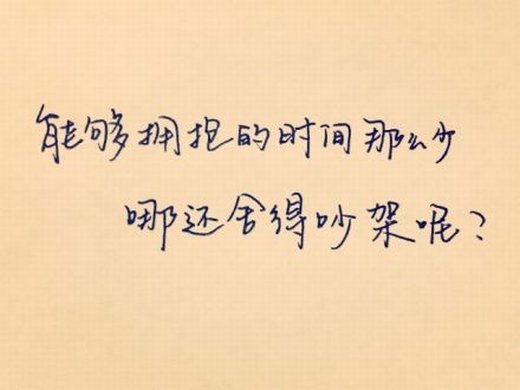 能够拥抱的时间那么少
哪还舍得吵架呢?